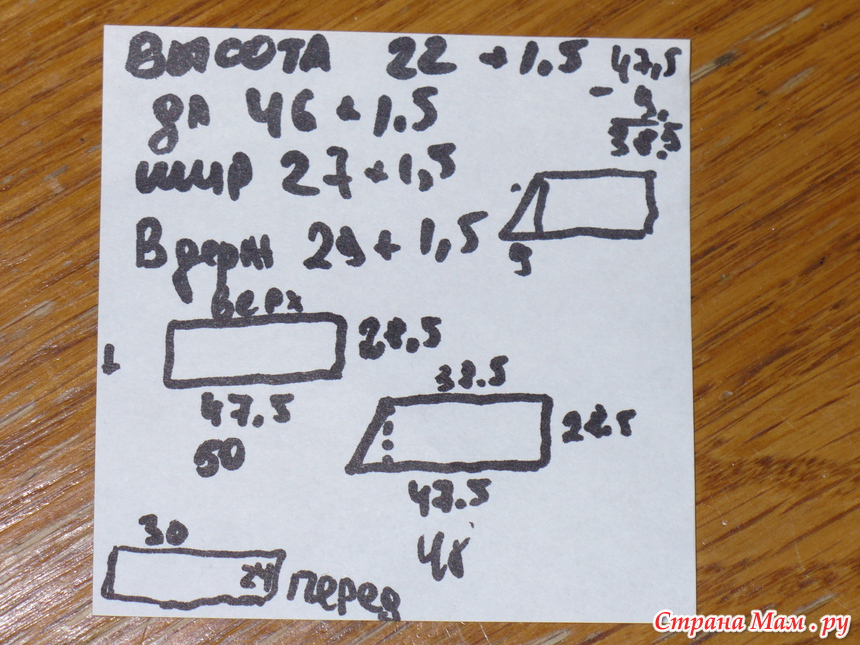 высота 22 + 1.5
дл 46 + 1.5
шир 27 + 1,5
В держ 29 + 1,5
47,5
-
9.
38.5
9
верх
28,5
1
47.5
50
38.5
47.5
48
30
24
перед
Страна Мам.ру